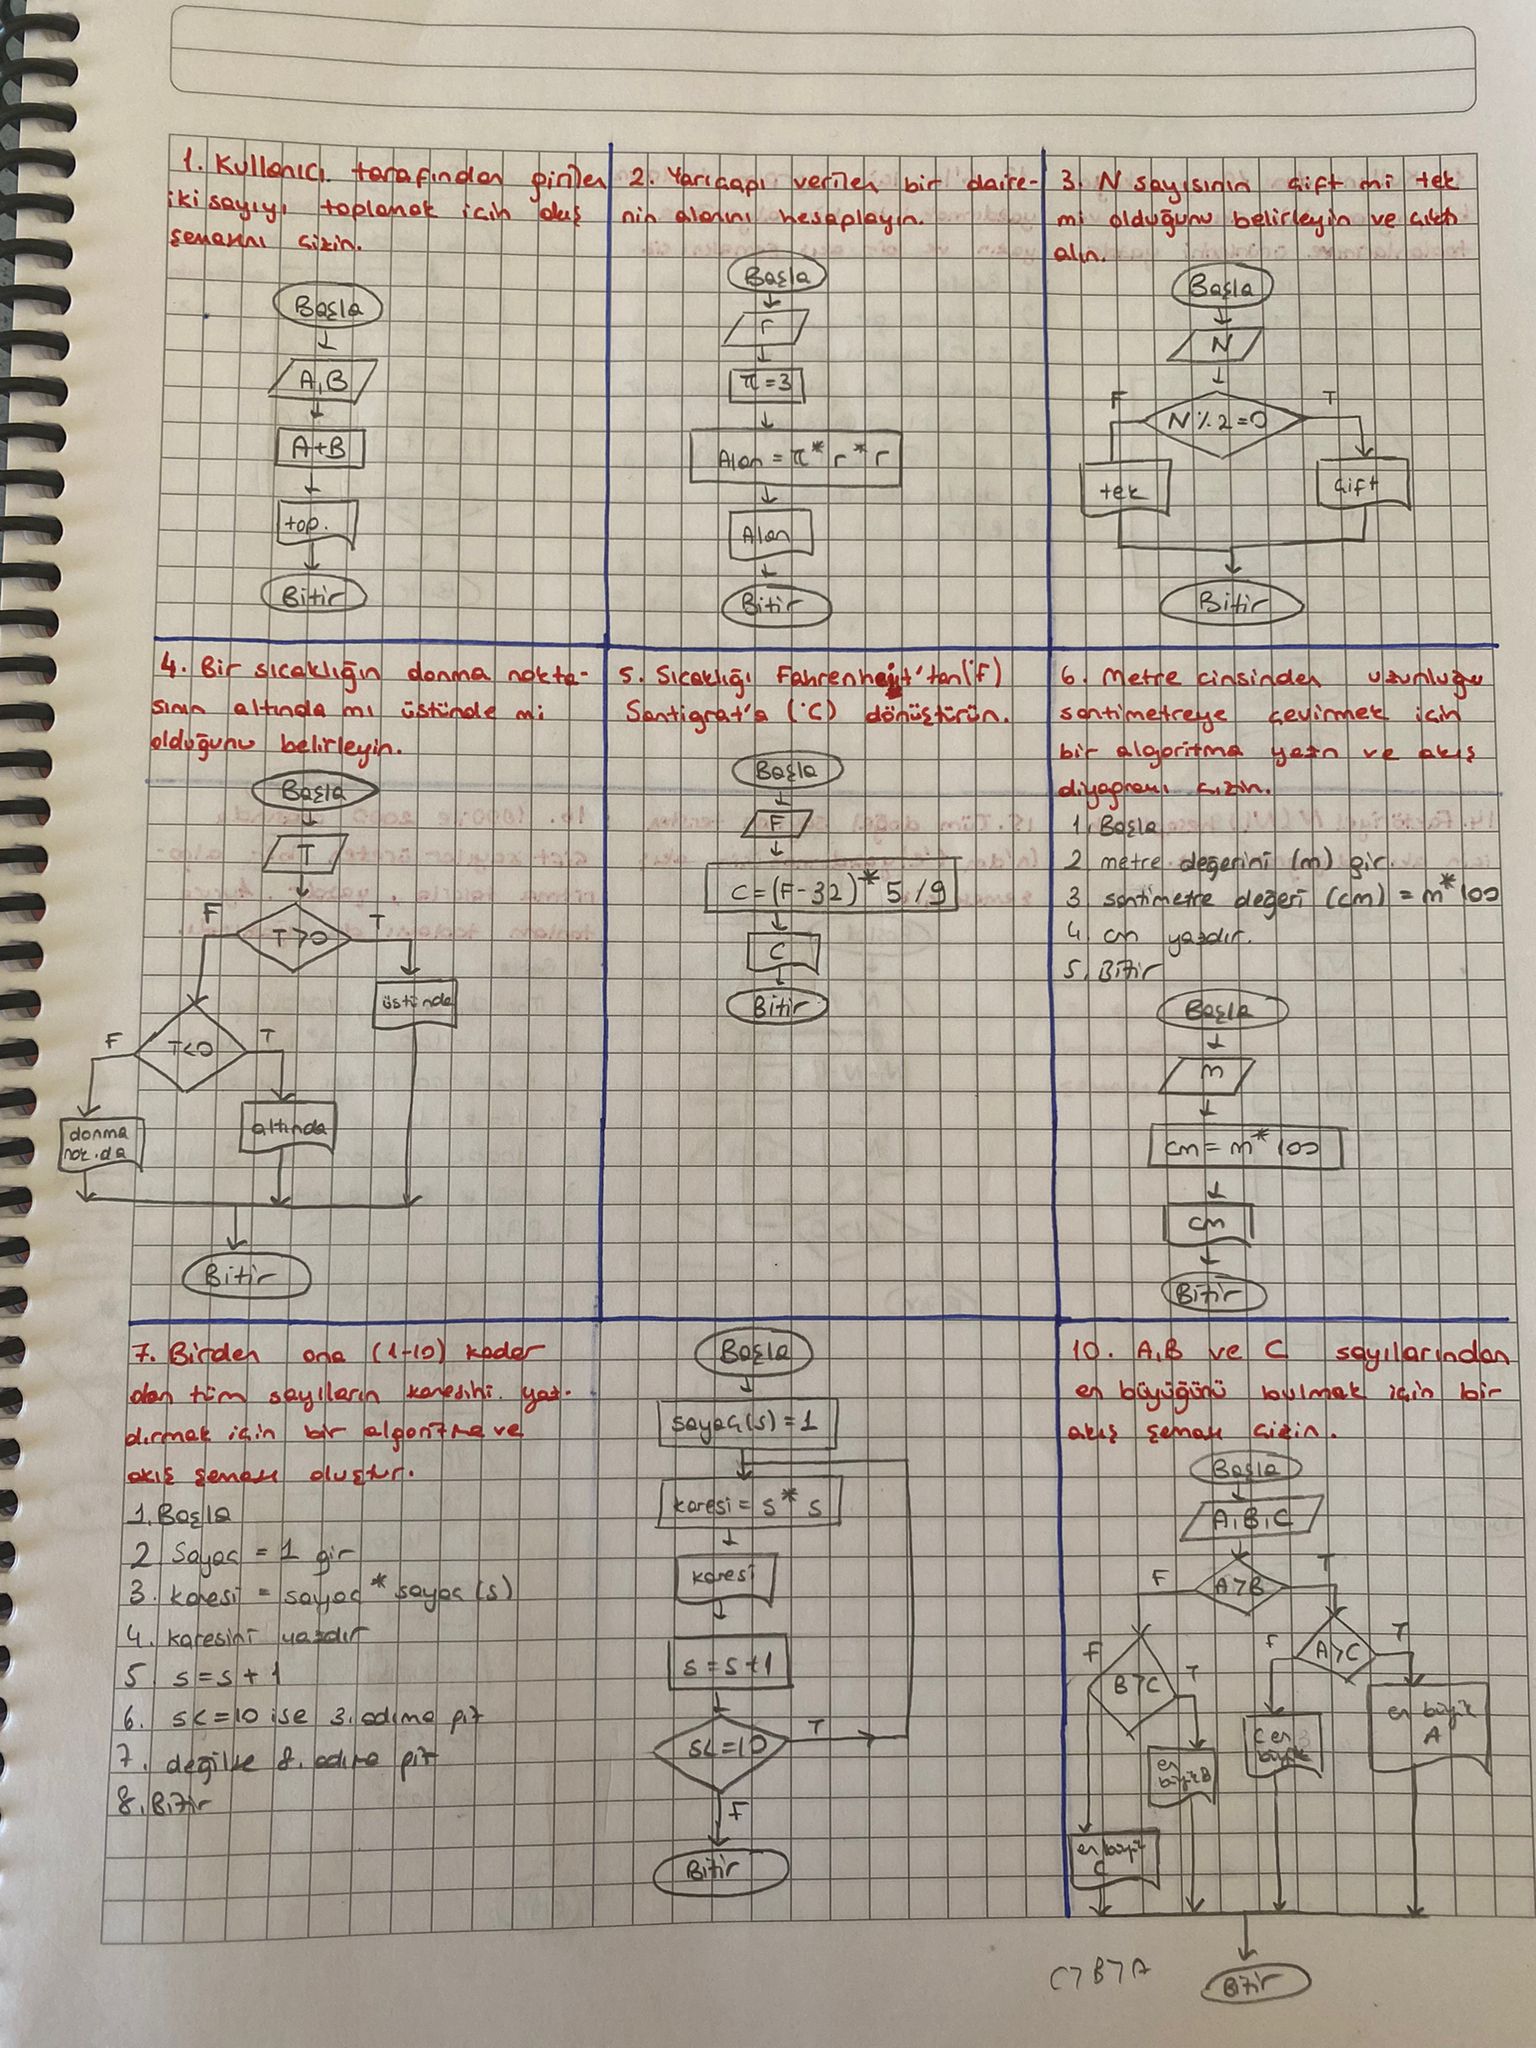 1. Kullanıcı tarafından girilen
iki sayıyı toplamak için akış
şemasını çizin.
Başla
A,B
A+B
top.
Bitir
2. Yarıçapı verilen bir daire-
nin alanını hesaplayın.
Başla
r
π=3
Alan = π* r * r
Alan
Bitir
3. N sayısının çift mi tek
mi olduğunu belirleyin ve çıktı
alın.
Başla
N
F
T
N % 2 = 0
tek
çift
Bitir
4. Bir sıcaklığın donma nokta-
sının altında mı üstünde mi
olduğunu belirleyin.
Başla
T
F
T
T>0
üstünde
F
T
T<0
donma
nok.da
altında
Bitir
5. Sıcaklığı Fahrenheit'tan(°F)
Santigrat'a (°C) dönüştürün.
Başla
F
C=(F-32)* 5/9
C
Bitir
6. Metre cinsinden uzunluğu
santimetreye çevirmek için
bir algoritma yazın ve akış
diyagramı çizin.
1. Başla
2 metre değerini (m) gir.
3 santimetre değeri (cm) = m*100
4. cm yazdır.
5. Bitir
Başla
m
cm = m* 100
cm
Bitir
7. Birden ona (1-10) kadar
olan tüm sayıların karesini yaz-
dırmak için bir algoritma ve
akış şeması oluştur.
1. Başla
2 Sayaç = 1 gir
3. karesi = sayaç * sayaç (s)
4. karesini yazdır
5. s=s+1
6. s<=10 ise 3. adıma git
7. değilse 8. adıma git
8. Bitir
Başla
sayaç(s) = 1
karesi = s * s
karesi
s=s+1
s<=10
T
F
Bitir
10. A,B ve C sayılarından
en büyüğünü bulmak için bir
akış şeması çizin.
Başla
A,B,C
F
T
A>B
F
T
B>C
F
T
A>C
en büyük
A
C en
büyük
en
büyük B
en büyük
C
C>B>A
Bitir